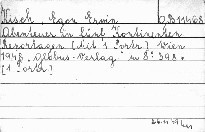 Kisch, Egon Erwin
Abenteuer in fünf Kontinenten
Reportagen (Mit 1 Portr.) Wien
1948, Globus-Verlag 8° 398.
[1 Portr.]